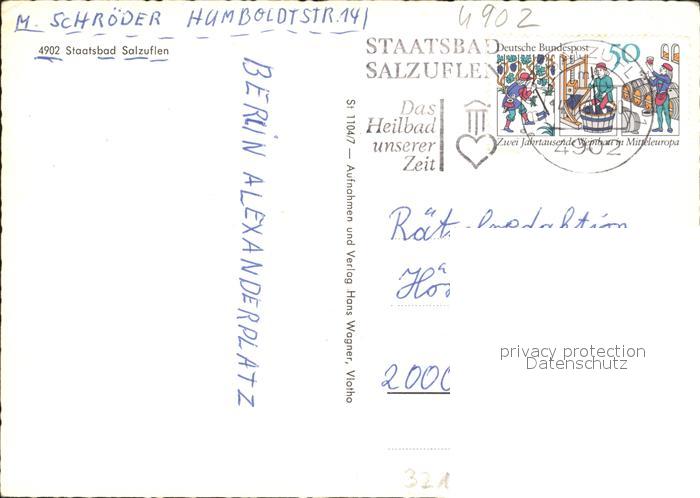 M. SCHRÖDER HUMBOLDTSTR. 14
4902 Staatsbad Salzuflen
BERLIN ALEXANDERPLATZ
SI 1104/7 — Aufnahmen und Verlag Hans Wagner, Vlotho
4902
STAATSBAD
SALZUFLEN
Das
Heilbad
unserer
Zeit
Deutsche Bundespost 50
Zwei Jahrtausende Weinbau in Mitteleuropa
4902
2000
privacy protection
Datenschutz
321